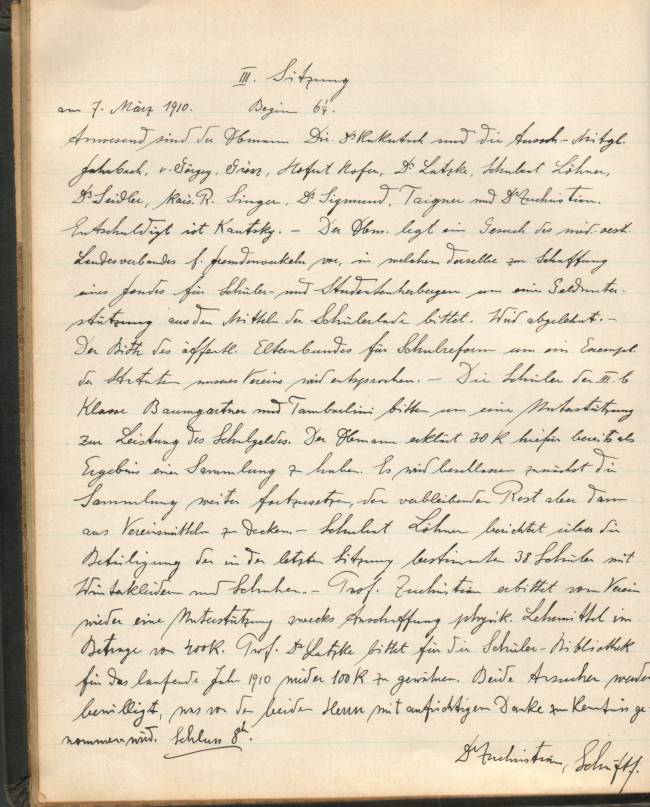 III. Sitzung
am 7. März 1910. Beginn 6¼.
Anwesend sind der Obmann Dir. Dr. Kukutsch und die Aussch.-Mitgl.
Fahrbach, v. Görgey, Grosz, Hofrat Hofer, Dr. Latzke, Schulrat Löhner,
Dr. Seidler, Kais. R. Singer, Dr. Sigmund, Taigner und Dr. Zuchristian.
Entschuldigt ist Kautsky. – Der Obm. legt ein Gesuch des nied. oest.
Landesverbandes f. Fremdenverkehr vor, in welchem derselbe zur Schaffung
eines Fondes für Schüler- und Studentenherbergen um eine Geldunter-
stützung aus den Mitteln der Schülerlade bittet. Wird abgelehnt. –
Der Bitte des öffentl. Elternbundes für Schulreform um ein Exempl.
der Statuten unseres Vereins wird entsprochen. – Die Schüler der III. b
Klasse Baumgartner und Tamburlini bitten um eine Unterstützung
zur Leistung des Schulgeldes. Der Obmann erklärt 30 K hiefür bereits als
Ergebnis einer Sammlung zu haben. Es wird beschlossen zunächst die
Sammlung weiter fortzusetzen, den verbleibenden Rest aber dann
aus Vereinsmitteln zu decken. – Schulrat Löhner berichtet über die
Beteiligung der in der letzten Sitzung bestimmten 38 Schüler mit
Winterkleidern und Schuhen. – Prof. Zuchristian erbittet vom Verein
wieder eine Unterstützung zwecks Anschaffung physik. Lehrmittel im
Betrage von 400 K. Prof. Dr. Latzke bittet für die Schüler-Bibliothek
für das laufende Jahr 1910 wieder 100 K zu gewähren. Beide Ansuchen werden
bewilligt, was von den beiden Herrn mit aufrichtigem Danke zur Kenntnis ge-
nommen wird. Schluss 8h.
Dr. Zuchristian, Schriftf.